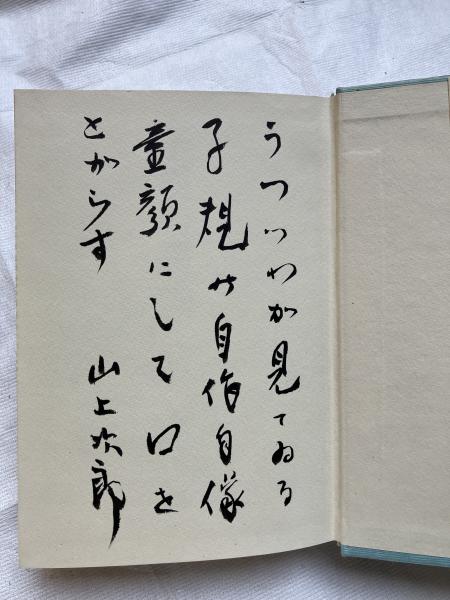 うつつわが見てゐる
子規の自作自像
童顔にして口を
とがらす 山上次郎